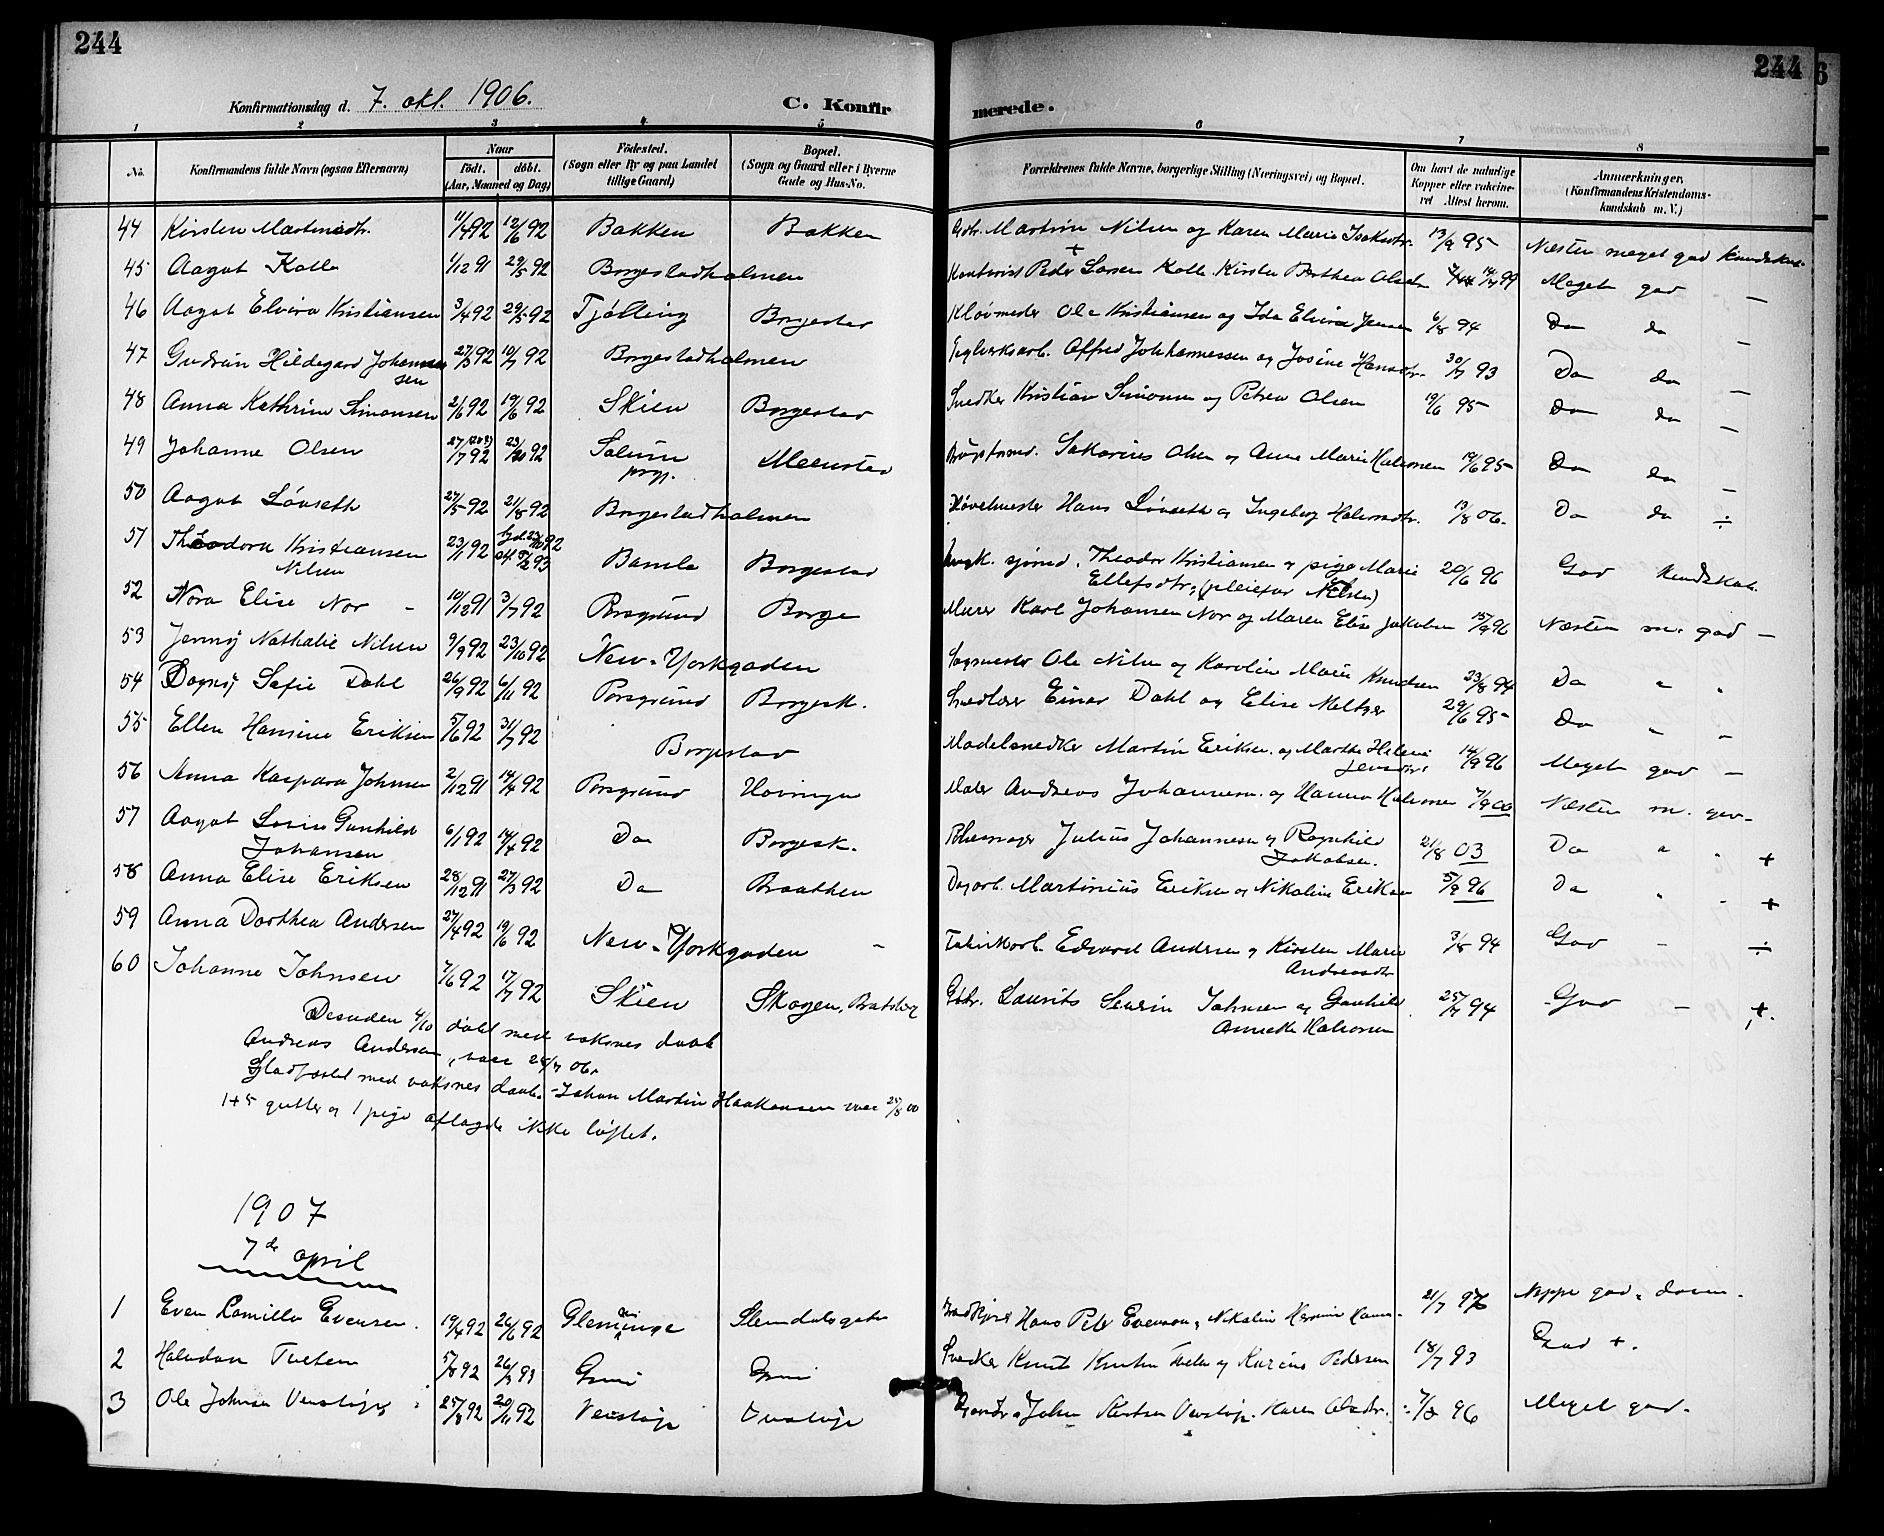 244
244
Konfirmationsdag d. 7. okt. 1906.
C. Konfirmerede.
1 2 3 4 5 6 7 8
No. Konfirmandens fulde Navn (ogsaa Efternavn) Naar født. døbt. (Aar, Maaned og Dag) Fødested. (Sogn eller By og paa Landet tillige Gaard) Bopæl. (Sogn og Gaard eller i Byerne Gade og Hus-No. Forældrenes fulde Navne, borgerlige Stilling (Næringsvei) og Bopæl. Om havt de naturlige Kopper eller vakcineret Attest herom. Anmærkninger. (Konfirmandens Kristendomskundskab m. V.)
44 Kirsten Martinsdtr. 11/4 92 12/6 92 Bakken Bakken Martin Nilsen og Karen Marie Isaksdtr. 13/9 95 Næsten meget god kundskab
45 Aagot Kolle 1/12 91 29/5 92 Borgestadholmen Kontorist Peder Larsen Kolle. Kirsten Berthea Olsdtr 14/7 99 Meget god —
46 Aagot Elvira Kristiansen 3/4 92 29/5 92 Tjølling Borgestad Ole Kristiansen og Ida Elvira Jensen 6/8 94 Do do —
47 Gudrun Hildegard Johannessen 27/3 92 10/7 92 Borgestadholmen Teglverksarb. Alfred Johannessen og Josine Hansdtr. 30/7 93 Do do —
48 Anna Kathrine Simonsen 2/6 92 19/6 92 Skien Borgestad Snedker Kristian Simonsen og Petrea Olsen 19/6 95 Do do —
49 Johanne Olsen 27/7 92 23/10 92 Solum prgj. Menstad Sakarias Olsen og Anne Marie Halvorsen 14/6 95 Do do —
50 Aagot Løvseth 27/5 92 21/8 92 Borgestadholmen Høvelmester Hans Løvseth og Ingeborg Halvorsdtr. 13/8 06. Do do ÷
51 Theodora Kristiansen Nilsen 23/1 92 Bamle Borgestad sjømd. Theodor Kristiansen og pige Marie Ellefsdtr, (pleiefar Nilsen) 20/6 96 God kundskab.
52 Nora Elise Nor - 10/12 91 3/7 92 Porsgrund Borge Murer Karl Johansen Nor og Maren Elise Jakobsen 15/9 96 Næsten m. god —
53 Jenny Nathalie Nilsen 9/9 92 23/10 92 New-Yorkgaden Sagmester Ole Nilsen og Karoline Marie Knudsen 23/8 94 Do " "
54 Dagny Sofie Dahl 26/9 92 6/11 92 Porsgrund Borgesk. Einar Dahl og Elise Meltzer 29/6 95 Do " —
55 Ellen Hansine Eriksen 5/6 92 31/7 92 Borgestad Modelsnedker Martin Eriksen og Marthe Helene Jensdtr. 14/9 96 Meget god —
56 Anna Kaspara Johnsen 2/12 91 14/4 92 Porsgrund Maler Andreas Johannesen og Hanna Halvorsen 7/9 00 Næsten m. god —
57 Aagot Gunhild Johansen 6/1 92 14/4 92 Do Borgesk. Julius Johannesen og Ragnhild Jakobsen. 21/8 03 Do " " +
58 Anna Elise Eriksen 28/12 91 27/3 92 Do Braathen Dagarb. Martinius Eriksen og Nikoline Eriksen 5/9 96 Do " - +
59 Anna Dorthea Andersen 27/4 92 19/6 92 New-Yorkgaden - Fabrikarb. Edvard Andersen og Kirsten Marie Andreasdtr 3/8 94 God - ÷
60 Johanne Johnsen 7/6 92 17/7 92 Skien Skogen, Bratsberg Gbr. Laurits Severin Johnsen og Gunhild Annette Halvorsen 25/7 94 God - +.
Desuden 4/10 døbt med voksnes daab
Andreas Andersen, vacc 28/7 06.
Stadfæstet med voksnes daab - Johan Martin Haakensen vacc 25/8 00
1+5 gutter og 1 pige aflagde ikke løftet.
1907
7de april
1 Even Kamillo Evensen. 19/4 92 26/6 92 Slemdalsgata Hans Peter Evensen og Nikoline 21/7 96 Neppe god.
2 Halvdan Tveten 5/8 92 26/3 93 Grini Grini Snedker Knut Knutsen Tveten og Karine Pedersen 18/7 93 God +.
3 Ole Johnsen Venstøp 25/8 92 20/11 92 Venstøp Venstøp John Knutsen Venstøp. Karen Olsdtr. 7/8 96 Meget god.